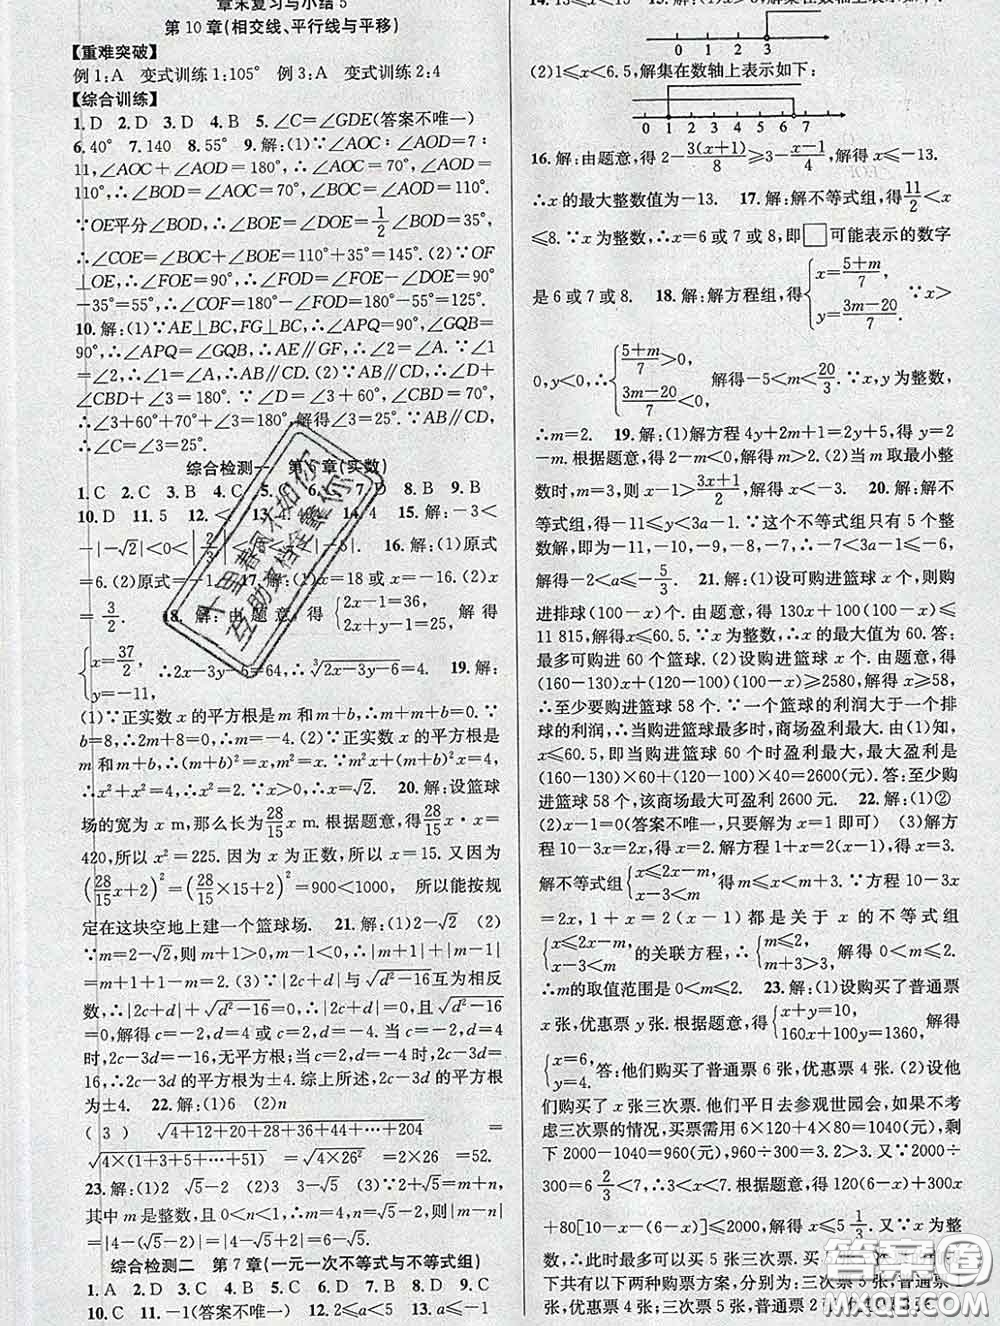 章末复习与小结5
第10章(相交线、平行线与平移)
【重难突破】
例1:A 变式训练1:105° 例3:A 变式训练2:4
【综合训练】
1.D 2.D 3.D 4.B 5.∠C=∠GDE(答案不唯一)
6.40° 7.140 8.55° 9.解:(1)∵∠AOC:∠AOD=7:
11,∠AOC+∠AOD=180°,∴∠AOC=70°,∠AOD=
110°,∴∠BOD=∠AOC=70°,∠BOC=∠AOD=110°.
∵OE平分∠BOD,∴∠BOE=∠DOE=1/2∠BOD=35°,
∴∠COE=∠BOC+∠BOE=110°+35°=145°.(2)∵OF⊥
OE,∴∠FOE=90°,∴∠BOF=∠FOE-∠BOE=90°
-35°=55°,∴∠COF=180°-∠BOF=180°-55°=125°.
10.解:(1)∵AE⊥BC,FG⊥BC,∴∠APQ=90°,∠GQB=
90°,∴∠APQ=∠GQB,∴AE∥GF,∴∠2=∠A.∵∠1
=∠2,∴∠1=∠A,∴AB∥CD.(2)∵AB∥CD,∴∠D+
∠CBD+∠3=180°.∵∠D=∠3+60°,∠CBD=70°,
∴∠3+60°+70°+∠3=180°,解得∠3=25°.∵AB∥CD,
∴∠C=∠3=25°.
综合检测一 第6章(实数)
1.C 2.C 3.C 4.C 7.D 8.B 9.B
10.D 11.5 12.< 14.4 15.解:-3<
-|-√2|<0< 16.解:(1)原式
=6.(2)原式=-1. 17.解:(1)x=18或x=-16.(2)x
=3/2. 18.解:由题意,得{2x-1=36, 2x+y+1=25, 解得
{x=37/2, y=-11, ∴2x-3y-6=64,∴³√(2x-3y-6)=4. 19.解:
(1)∵正实数x的平方根是m和m+b,∴m+m+b=0.∵b
=8,∴2m+8=0,∴m=-4.(2)∵正实数x的平方根是m
和m+b,∴(m+b)²=x,m²=x.∵m²x+(m+b)²x=4,
∴x²+x²=4,∴x²=2.∵x>0,∴x=√2. 20.解:设篮球
场的宽为x m,那么长为28/15 x m.根据题意,得28/15 x·x=
420,所以x²=225.因为x为正数,所以x=15.又因为
(28/15 x+2)²=(28/15×15+2)²=900<1000, 所以能按规
定在这块空地上建一个篮球场. 21.解:(1)2-√2 (2)
∵m=2-√2,则m+1>0,m-1<0,∴|m+1|+|m-1|
=m+1+1-m=2.(3)∵|2c+d|与√(d²-16)互为相反
数,∴|2c+d|+√(d²-16)=0,∴|2c+d|=0,且√(d²-16)
=0,解得c=-2,d=4或c=2,d=-4.当c=-2,d=4
时,2c-3d=-16,无平方根;当c=2,d=-4时,2c-3d=
16,∴2c-3d的平方根为±4.综上所述,2c-3d的平方根为
±4. 22.解:(1)6 (2)n
(3) √(4+12+20+28+36+44+…+204)
=√(4×(1+3+5+…+51))=√(4×26²)=2×26=52.
23.解:(1)2 √5-2 (2)√5-2 (3)∵2+√5=m+n,
其中m是整数,且0<n<1,∴m=4,n=√5-2,∴|m-n|
=|4-(√5-2)|=|4-√5+2|=6-√5.
综合检测二 第7章(一元一次不等式与不等式组)
1.A 2.A 3.D 4.C 5.B 6.D 7.B 8.D 9.C
10.C 11.-1(答案不唯一) 12.2≤a<5 13.a≤-1
0 3
(2)1≤x<6.5,解集在数轴上表示如下:
0 1 2 3 4 5 6 7
16.解:由题意,得2-3(x+1)/8≥3-(x-1)/4,解得x≤-13.
∴x的最大整数值为-13. 17.解:解不等式组,得11/2<x
≤8.∵x为整数,∴x=6或7或8,即□可能表示的数字
是6或7或8. 18.解:解方程组,得{x=(5+m)/7, y=(3m-20)/7. ∵x>
0,y<0,∴{(5+m)/7>0, (3m-20)/7<0, 解得-5<m<20/3.∵x,y为整数,
∴m=2. 19.解:(1)解方程4y+2m+1=2y+5,得y=
2-m.根据题意,得2-m<0,解得m>2.(2)当m取最小整
数时,m=3,得x-1>(3x+1)/2,解得x<-3. 20.解:解不
等式组,得-11≤x<3a-1.∵这个不等式组只有5个整
数解,∴x=-11,-10,-9,-8,-7,∴-7<3a-1≤-6,
解得-2<a≤-5/3. 21.解:(1)设可购进篮球x个,则购
进排球(100-x)个.由题意,得130x+100(100-x)≤
11 815,解得x≤60.5.∵x为整数,∴x的最大值为60.答:
最多可购进60个篮球.(2)设购进篮球x个.由题意,得
(160-130)x+(120-100)(100-x)≥2580,解得x≥58,
∴至少要购进篮球58个.∵一个篮球的利润大于一个排
球的利润,∴当购进篮球最多时,商场盈利最大.由(1)知,
x≤60.5,即当购进篮球60个时盈利最大,最大盈利是
(160-130)×60+(120-100)×40=2600(元).答:至少购
进篮球58个,该商场最大可盈利2600元. 22.解:(1)①②
(2)x-1=0(答案不唯一,只要解为x=1即可) (3)解方
程10-3x=2x,得x=2.解方程1+x=2(x-1),得x=3.
解不等式组{x≤2x-m, x-3≤m, 得m≤x≤m+3.∵方程10-3x
=2x,1+x=2(x-1)都是关于x的不等式组
{x≤2x-m, x-3≤m 的关联方程,∴{m≤2, m+3>3, 解得0<m≤2.
∴m的取值范围是0<m≤2. 23.解:(1)设购买了普通票
x张,优惠票y张.根据题意,得{x+y=10, 160x+100y=1360, 解得
{x=6, y=4. 答:他们购买了普通票6张,优惠票4张.(2)设他
们购买了x张三次票.他们平日去参观世园会,如果不考
虑三次票的情况,买票需用6×120+4×80=1040(元),剩
下2000-1040=960(元),960÷300=3.2.∵2000÷
300=6 2/3<7,∴3<x<7.根据题意,得120(16-x)
+80[10-x-(6-x)]+300x≤2000,解得x≤5 1/3.∵x为整
数,∴此时最多可以买5张三次票.买
下共有以下两种购票方案,分别为:三次票5张,普通票
优惠票4张;三次票5张,普通票2